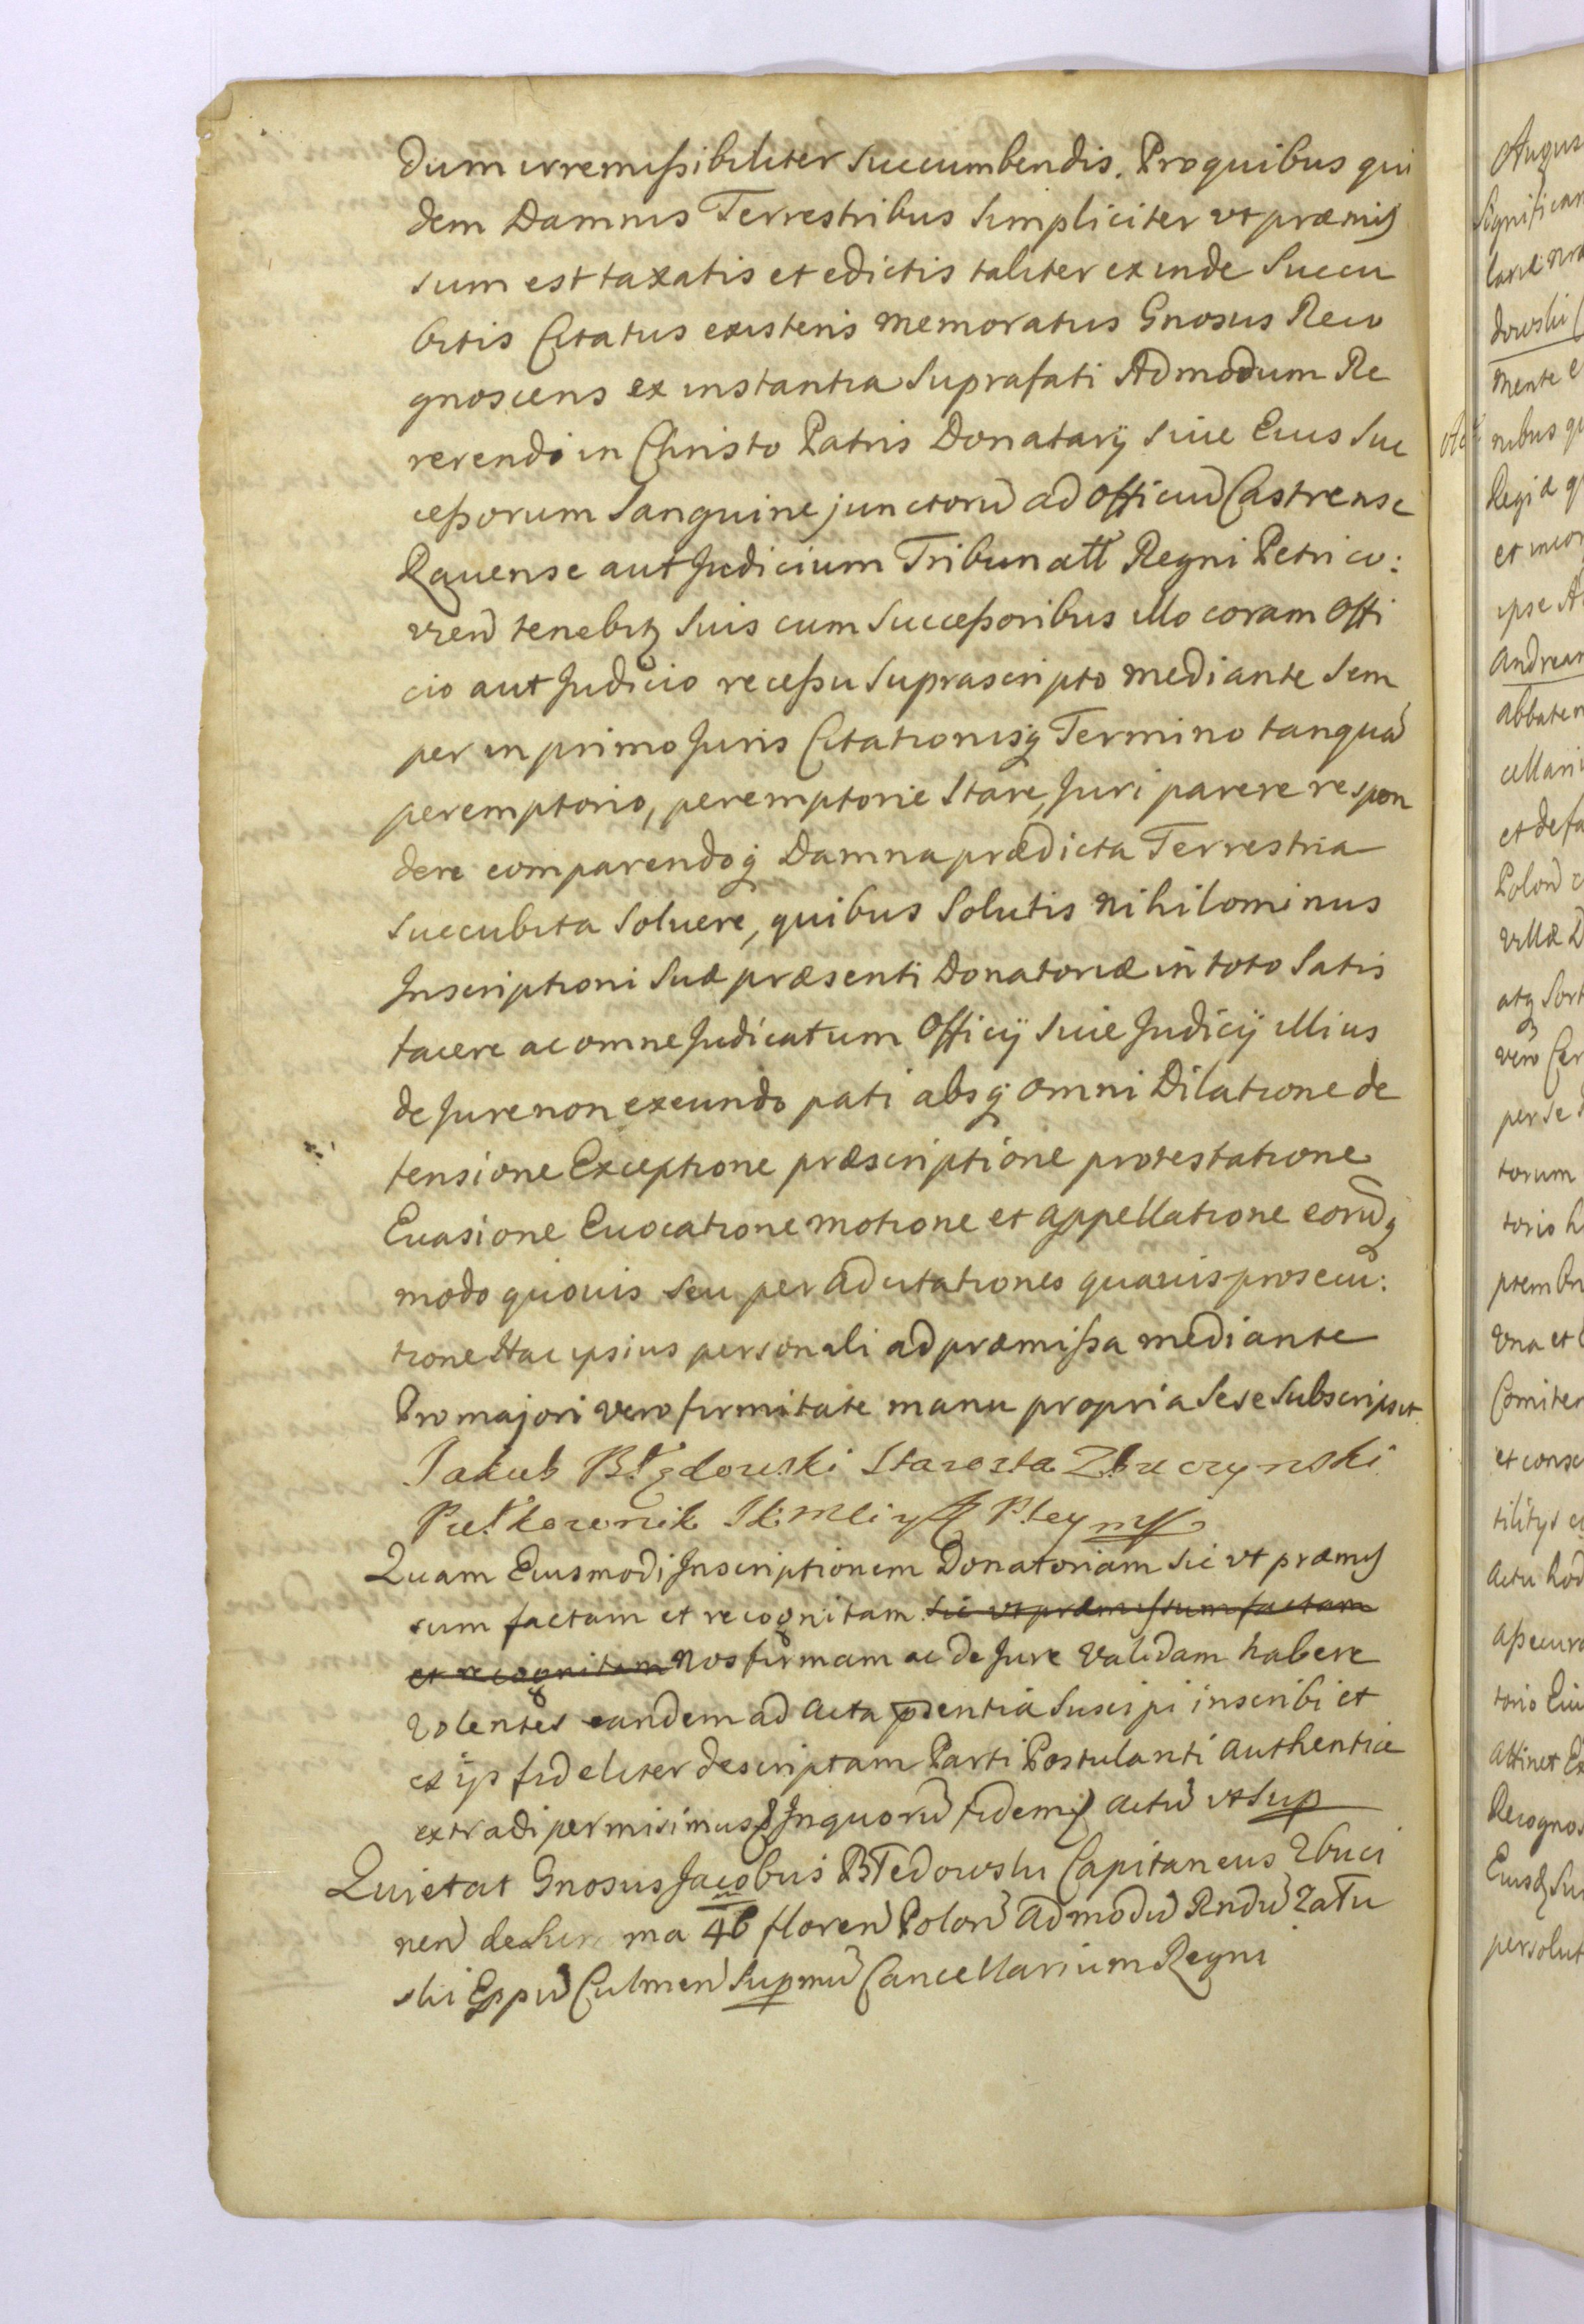 dum irremissibiliter Succumbendis. Pro quibus qui
dem Damnis Terrestribus Simpliciter vt præmis
sum est taxatis et edictis taliter exinde Succu
bitis Citatus existens memoratus Gnosus Reco
gnoscens ex instantia Suprafati Admodum Re
verendi in Christo Patris Donatarÿ Siue Eius Suc
cessorum Sanguine junctorũ ad Officiũ Castrense
Rauense aut Judicium Tribunatt Regni Petrico:
vien̄ tenebitꝫ Suis cum Successoribus illo coram Offi
cio aut Judicio recessu Suprascripto mediante Sem
per in primo Juris Citationisqꝫ Termino tanquã
peremptorio, peremptorie Stare, Juri parere respon
dere comparendoqꝫ Damna prædicta Terrestria
Succubita Soluere, quibus Solutis nihilominus
Inscriptioni Suæ præsenti Donatoriæ in toto Satis
facere ac omne Judicatum Officÿ Siue Judicÿ illius
de Jure non exeundo pati absqꝫ omni Dilatione de
fensione Exceptione præscriptione protestatione
Euasione Euocatione motione et appellatione eorũqꝫ
modo quouis Seu per adcitationes quasuis prosecu:
tione Hac ipsius personali ad præmissa mediante
Pro majori vero firmitate manu propria Sese Subscripsit.
Jakub Błędowski Starosta Zbuczynski
Pułkownik
Quam Eiusmodi Inscriptionem Donatoriam Sic vt præmis
sum factam et recognitam Sic vt præmissum factam
et recognitam nos firmam ac de Jure Validam habere
Volentes eandem ad acta pꝛ̄entia Suscipi inscribi et
ex ijs fideliter descriptam Parti Postulanti authentice
extradi permisimus In quorũ fidem actũ vt Sup
Quietat Gnosus Jacobus Błedowski Capitaneus Zbuci
nen̄ de Sum ma 4 floren̄ Polon̄ Admodũ Rndũ Zału
ski Eppũ Culmen̄ Supmũ Cancellarium Regni
Augus
Significam
dowski
mente e
nibus qu
Regia q
ipse A
Andream
abbatem
cellarii
et de fa
Polon̄
villæ D
atqꝫ Sort
vero Cer
per se
torum
torio h
ptembr
vna et
Comiter
et conse
actu hod
assecura
torio Eiu
attinet Ex
Recognos
Eiusqꝫ Su
persolut